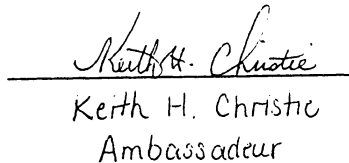 Keith H. Christie
Keith H. Christie
Ambassadeur